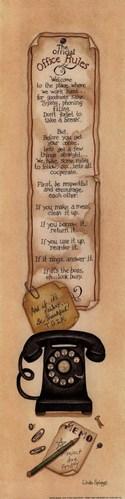 The
official
Office Rules
Welcome
to the place, where
we work hard
for goodness sake.
Typing, phoning
filling.
Don't forget to
take a break.
But
Before you get
your come.
Let's get a few
things straight.
We have some rules
to follow, so let's all
cooperate.
First, be respectful
and encourage
each other.
If you make a mess,
clean it up.
If you borrow it,
return it.
If you use it up,
reorder it.
If it rings, answer it.
If it's the boss,
look busy.
And if it's
Friday,
Be thankful
T.G.I.F.
MEMO
Project
due
Friday
Linda Spivey